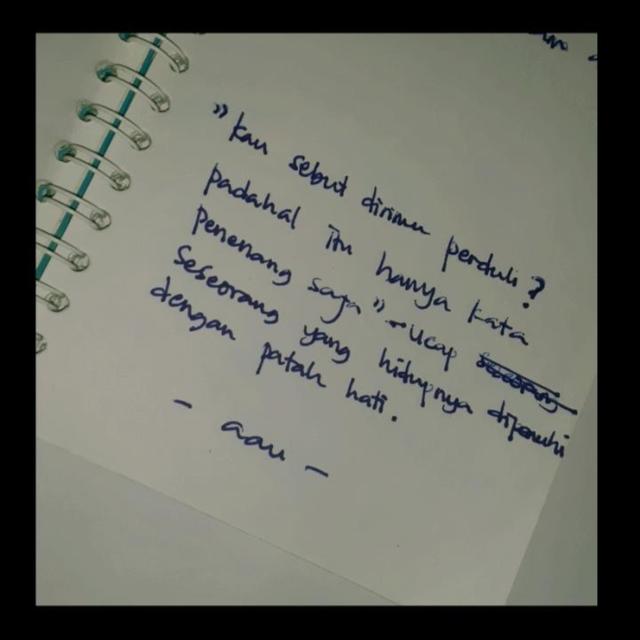 "Kau sebut dirimu perduli?
padahal itu hanya kata
penenang saja" -ucap
seseorang yang hidupnya dipenuhi
dengan patah hati.
- aau -